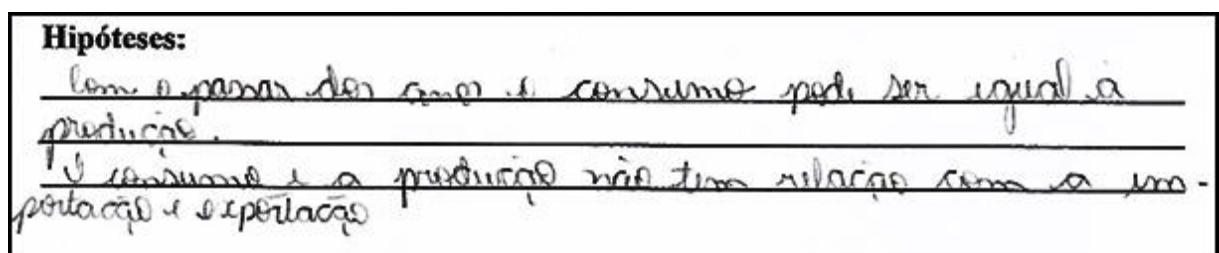 Hipóteses:
Com o passar dos anos o consumo pode ser igual a
produção.
O consumo e a produção não tem relação com a im-
portação e exportação